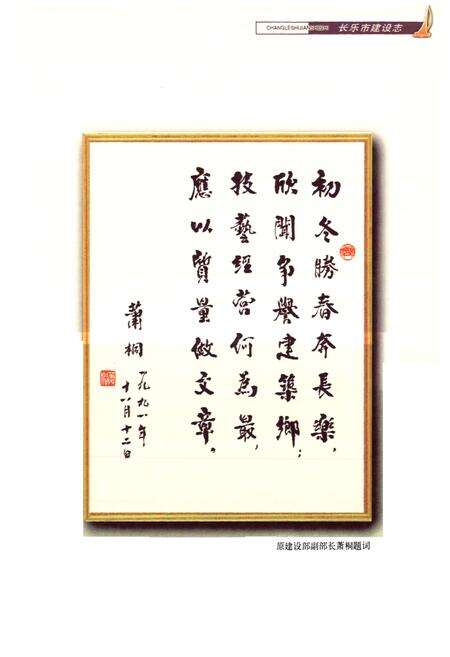 CHANGLESHIJIANSHEZHI 长乐市建设志
初冬勝春奔長樂，
欣聞争譽建築鄉；
技藝經营何為最，
應以質量做文章。
蕭桐
一九九一年
十一月十二日
原建设部副部长萧桐题词